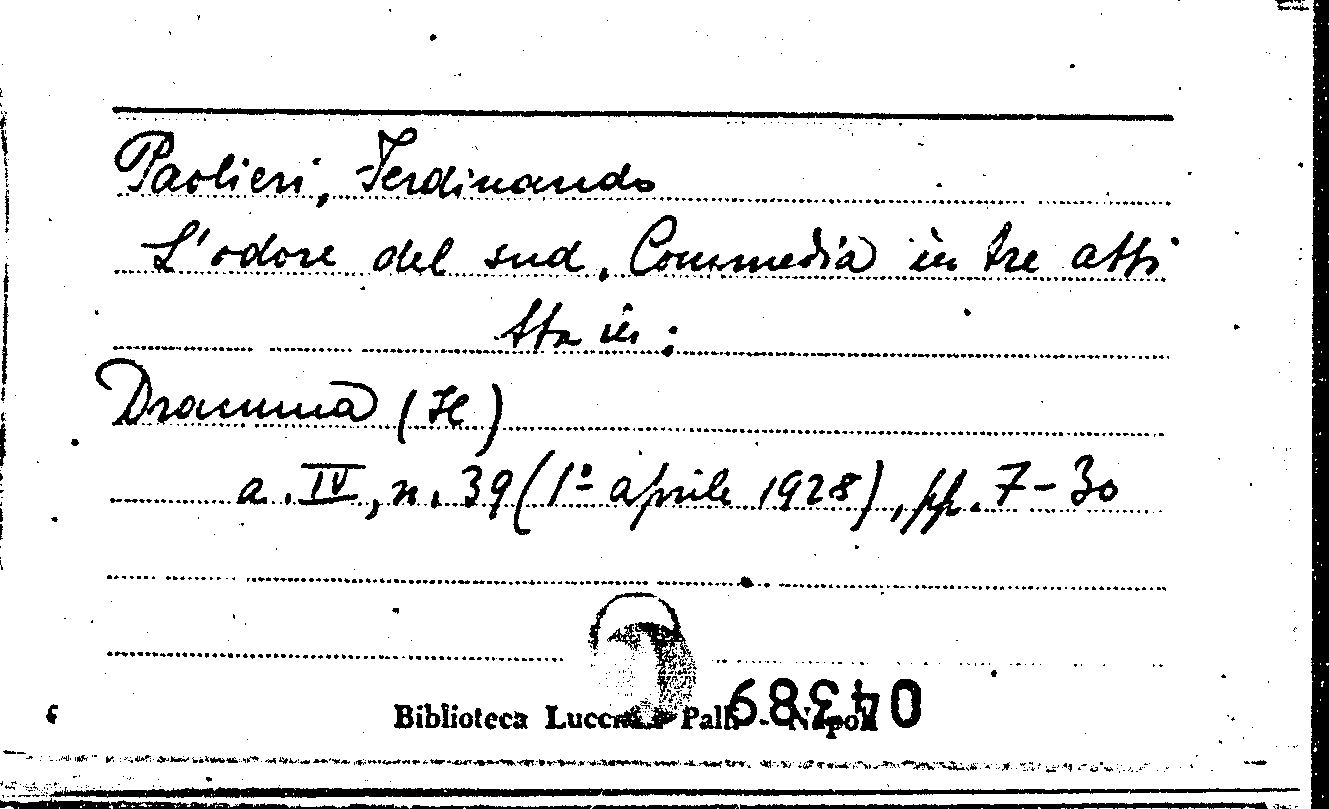 Paolieri, Ferdinando
L'odore del sud. Commedia in tre atti
Sta in:
Dramma (Il)
a. IV, n. 39 (1º aprile 1928), pp. 7-30
Biblioteca Lucchesi Palli - Napoli